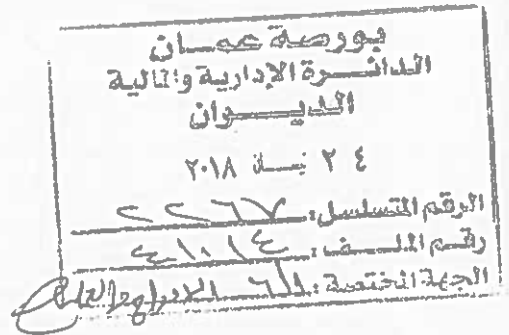 بورصة عمان
الدائرة الإدارية والمالية
الديوان
٢٤ نيسان ٢٠١٨
الرقم المتسلسل: ٢٢٦٧
رقم الملف:
الجهة المختصة: